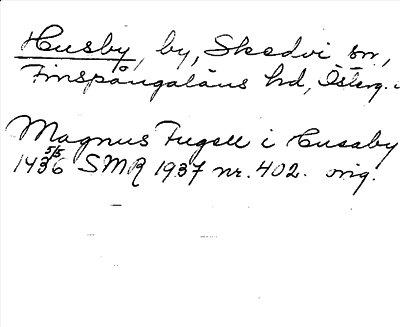 Husby, by, Skedvi sn,
Finspångaläns hd, Österg.
Magnus Fugell i Husaby
1436 5/5 SMR 1937 nr. 402. orig.